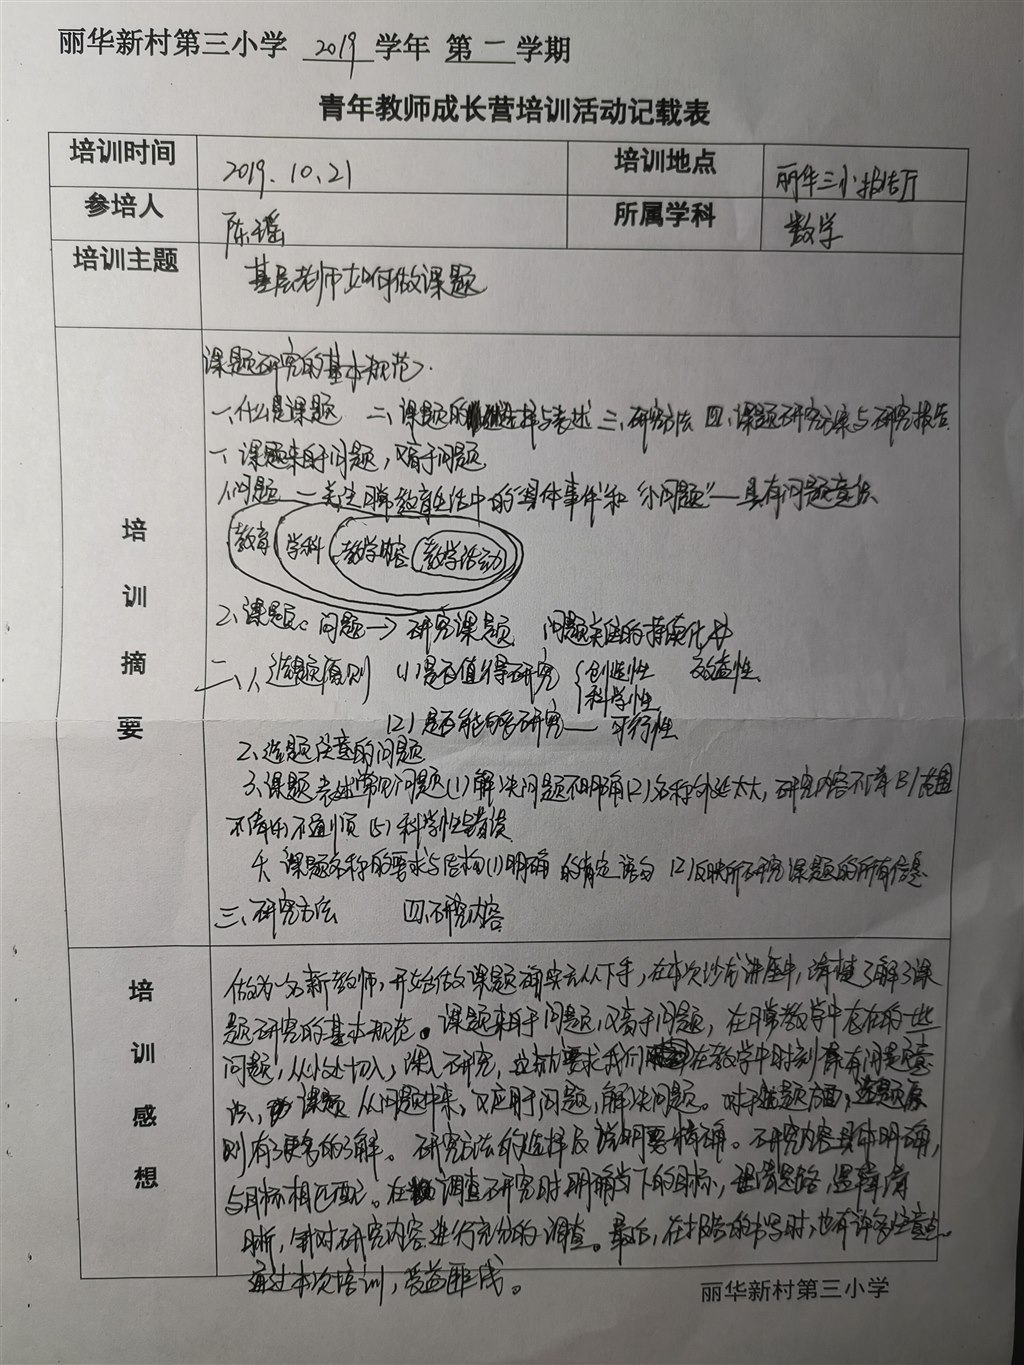 丽华新村第三小学 2019 学年 第 一 学期
青年教师成长营培训活动记载表
培训时间 2019.10.21 培训地点 丽华三小报告厅
参培人 陈瑶 所属学科 数学
培训主题 基层老师如何做课题
培训摘要
课题研究的基本规范.
一、什么是课题 二、课题的选择与表述 三、研究方法 四、课题研究方案与研究报告
一、课题来自于问题,又高于问题
1、问题 — 关注日常教育生活中的"具体事件"和"小问题"——具有问题意识
教育 学科 教学内容 教学活动
2、课题。问题→研究课题 问题关注的持续化
二、1、选题原则 (1)是否值得研究 创造性 效益性
科学性
(2)是否能够研究—— 可行性
2、选题注意的问题
3、课题表述常见问题(1)解决问题不明确(2)名称外延太大,研究内容不清(3)范围
不清(4)不通顺 (5)科学性错误
4、课题名称的要求与结构(1)明确的肯定语句 (2)反映所研究课题的所有信息
三、研究方法 四、研究内容
培训感想
做为一名新教师,开始做课题确实无从下手,在本次沙龙讲座中,清楚了解了课
题研究的基本规范。课题来自于问题,又高于问题,在日常教学中存在的一些
问题,从小处切入,深入研究,这就要求我们在教学中时刻具有问题意
识,课题从问题中来,又应用于问题,解决问题。对于选题方面,选题原
则有了更多的了解。研究方法的选择及说明要精确。研究内容具体明确,
与目标相匹配。在调查研究时明确当下的目标,理清思路,逻辑清
晰,针对研究内容进行充分的调查。最后,在报告的书写时,也有许多注意点。
通过本次培训,受益匪浅。
丽华新村第三小学